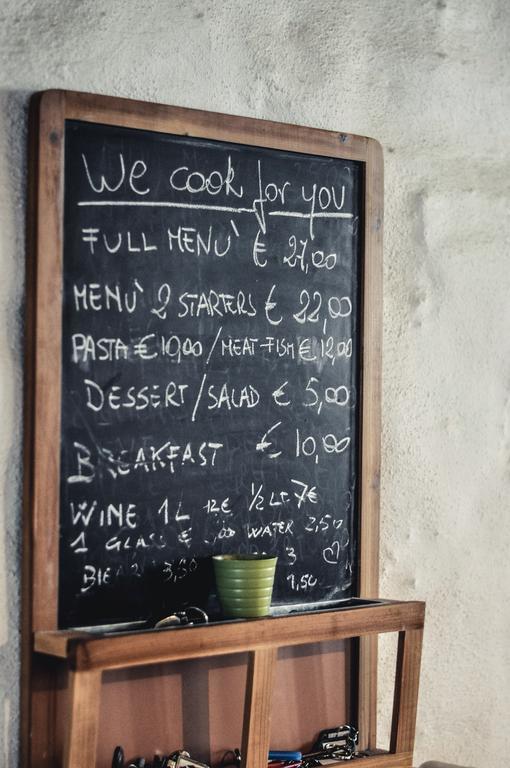 We cook for you
FULL MENÙ € 27,00
MENÙ 2 STARTERS € 22,00
PASTA € 10,00 / MEAT-FISH € 12,00
DESSERT / SALAD € 5,00
BREAKFAST € 10,00
WINE 1L 12€ ½ LT. 7€
1 GLASS € ,00 WATER 2,50
3,50 3
1,50